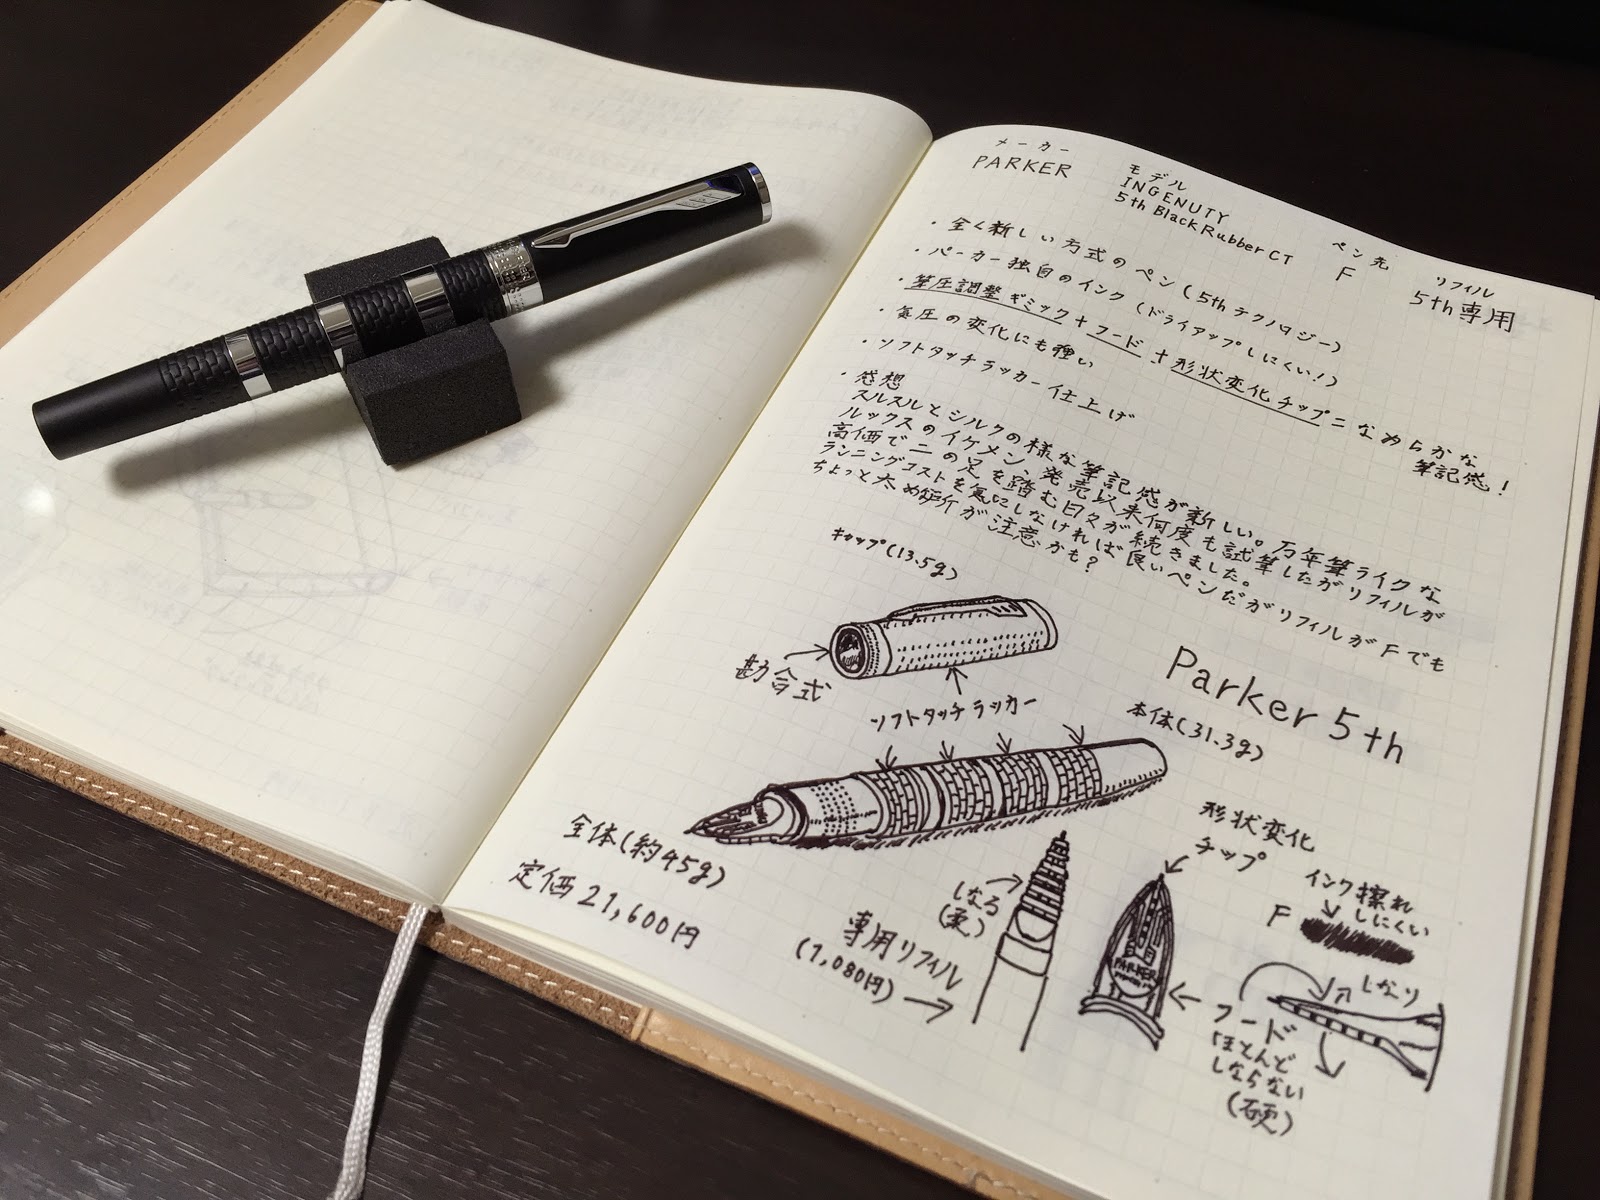 メーカー
PARKER
モデル
INGENUTY
5th Black Rubber CT
ペン先
F
リフィル
5th専用
・全く新しい方式のペン(5thテクノロジー)
・パーカー独自のインク(ドライアップしにくい!)
・筆圧調整ギミック+フード+形状変化チップ=なめらかな
筆記感!
・気圧の変化にも強い
・ソフトタッチラッカー仕上げ
・感想
スルスルとシルクの様な筆記感が新しい。万年筆ライクな
ルックスのイケメン、発売以来何度も試筆したがリフィルが
高価で二の足を踏む日々が続きました。
ランニングコストを気にしなければ良いペンだがリフィルがFでも
ちょっと太め 所が注意かも?
キャップ(13.5g)
勘合式
ソフトタッチラッカー
Parker 5th
本体(31.3g)
全体(約45g)
定価21,600円
形状変化
チップ
しなる
(柔)
専用リフィル
(1,080円)
PARKER
インク擦れ
しにくい
F
しなり
フード
ほとんど
しならない
(硬)